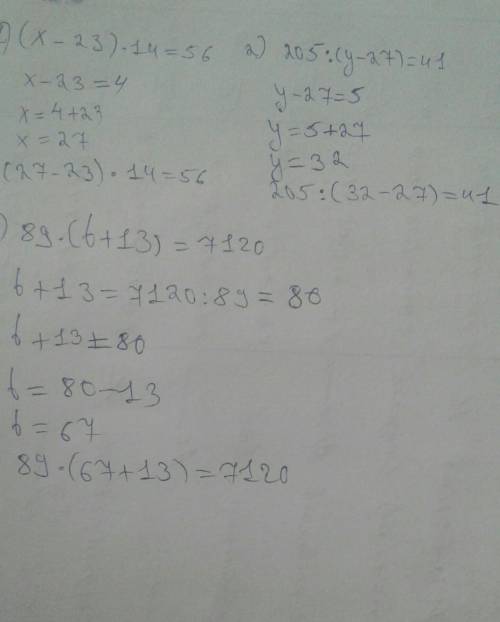 ) (x - 23) · 14 = 56
x - 23 = 4
x = 4 + 23
x = 27
(27 - 23) · 14 = 56
2) 205 : (y - 27) = 41
y - 27 = 5
y = 5 + 27
y = 32
205 : (32 - 27) = 41
) 89 · (b + 13) = 7120
b + 13 = 7120 : 89 = 80
b + 13 = 80
b = 80 - 13
b = 67
89 · (67 + 13) = 7120